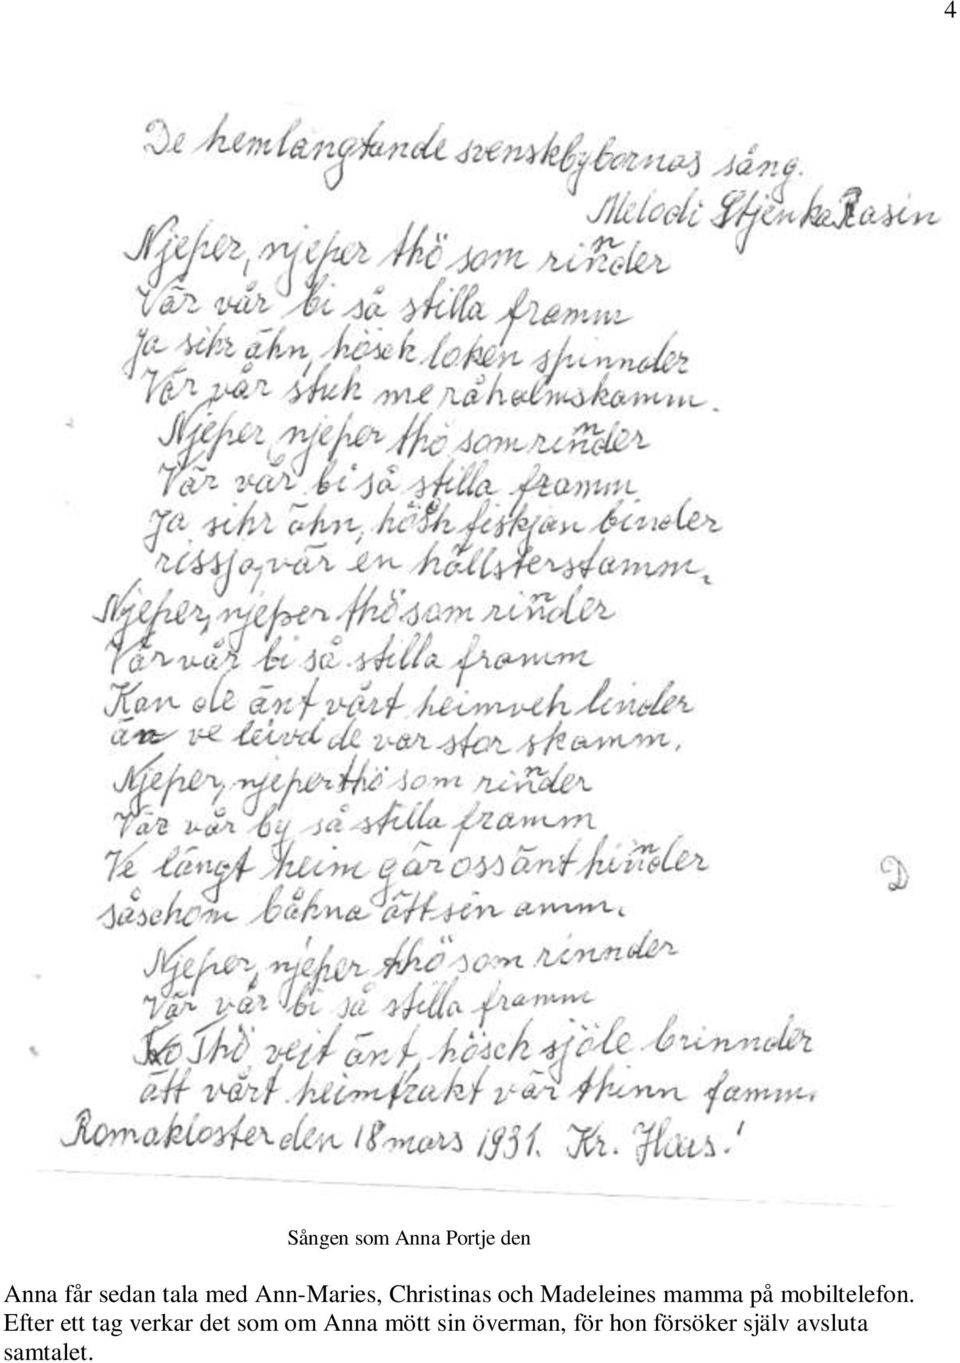 4
De hemlängtande svenskbybornas sång.
Melodi Stjenka Rasin
Njeper, njeper thö som rinder
Vär vår bi så stilla framm
Ja sihr ähn, hösch loken spinnder
Vär vår stuk me råhalmskamm.
Njeper, njeper thö som rinder
Vär vår bi så stilla framm
Ja sihr ähn, hösch fiskjan binder
rissja, vär en hällsterstamm.
Njeper, njeper thö som rinder
Vär vår bi så stilla framm
Kan de änt vårt heimveh linder
än ve leivd de var stor skamm.
Njeper, njeper thö som rinder
Vär vår by så stilla framm
Ve längt heim gär oss änt hinder
såschom båhna ätt sin amm.
Njeper, njeper thö som rinnder
Vär vår bi så stilla framm
Thö vejt änt, hösch sjöle brinnder
ätt vårt heimtrakt vär thinn famm.
Romakloster den 18 mars 1931. Kr. Hoas!
D
Sången som Anna Portje den
Anna får sedan tala med Ann-Maries, Christinas och Madeleines mamma på mobiltelefon.
Efter ett tag verkar det som om Anna mött sin överman, för hon försöker själv avsluta
samtalet.